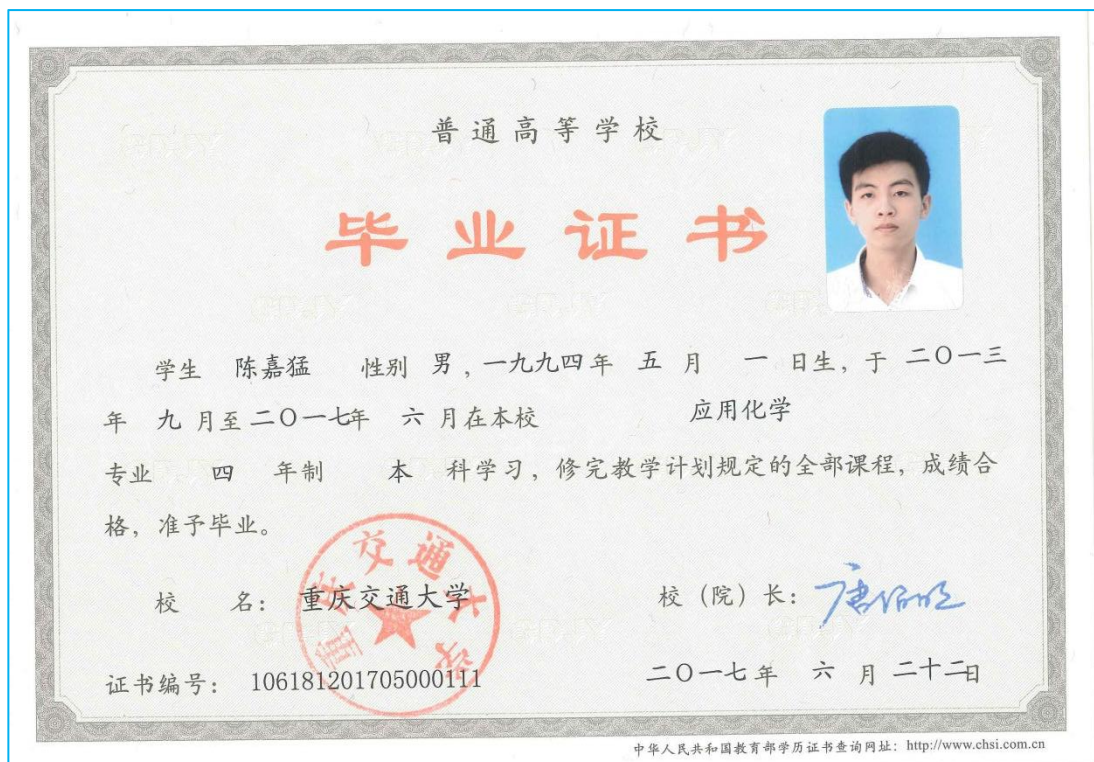 普通高等学校
毕业证书
学生 陈嘉猛 性别 男，一九九四年 五 月 一 日生，于 二〇一三
年 九 月至二〇一七年 六 月在本校 应用化学
专业 四 年制 本 科学习，修完教学计划规定的全部课程，成绩合
格，准予毕业。
重庆交通大学
校 名： 重庆交通大学 校（院）长：唐伯明
证书编号： 106181201705000111 二〇一七年 六 月 二十二日
中华人民共和国教育部学历证书查询网址：http://www.chsi.com.cn